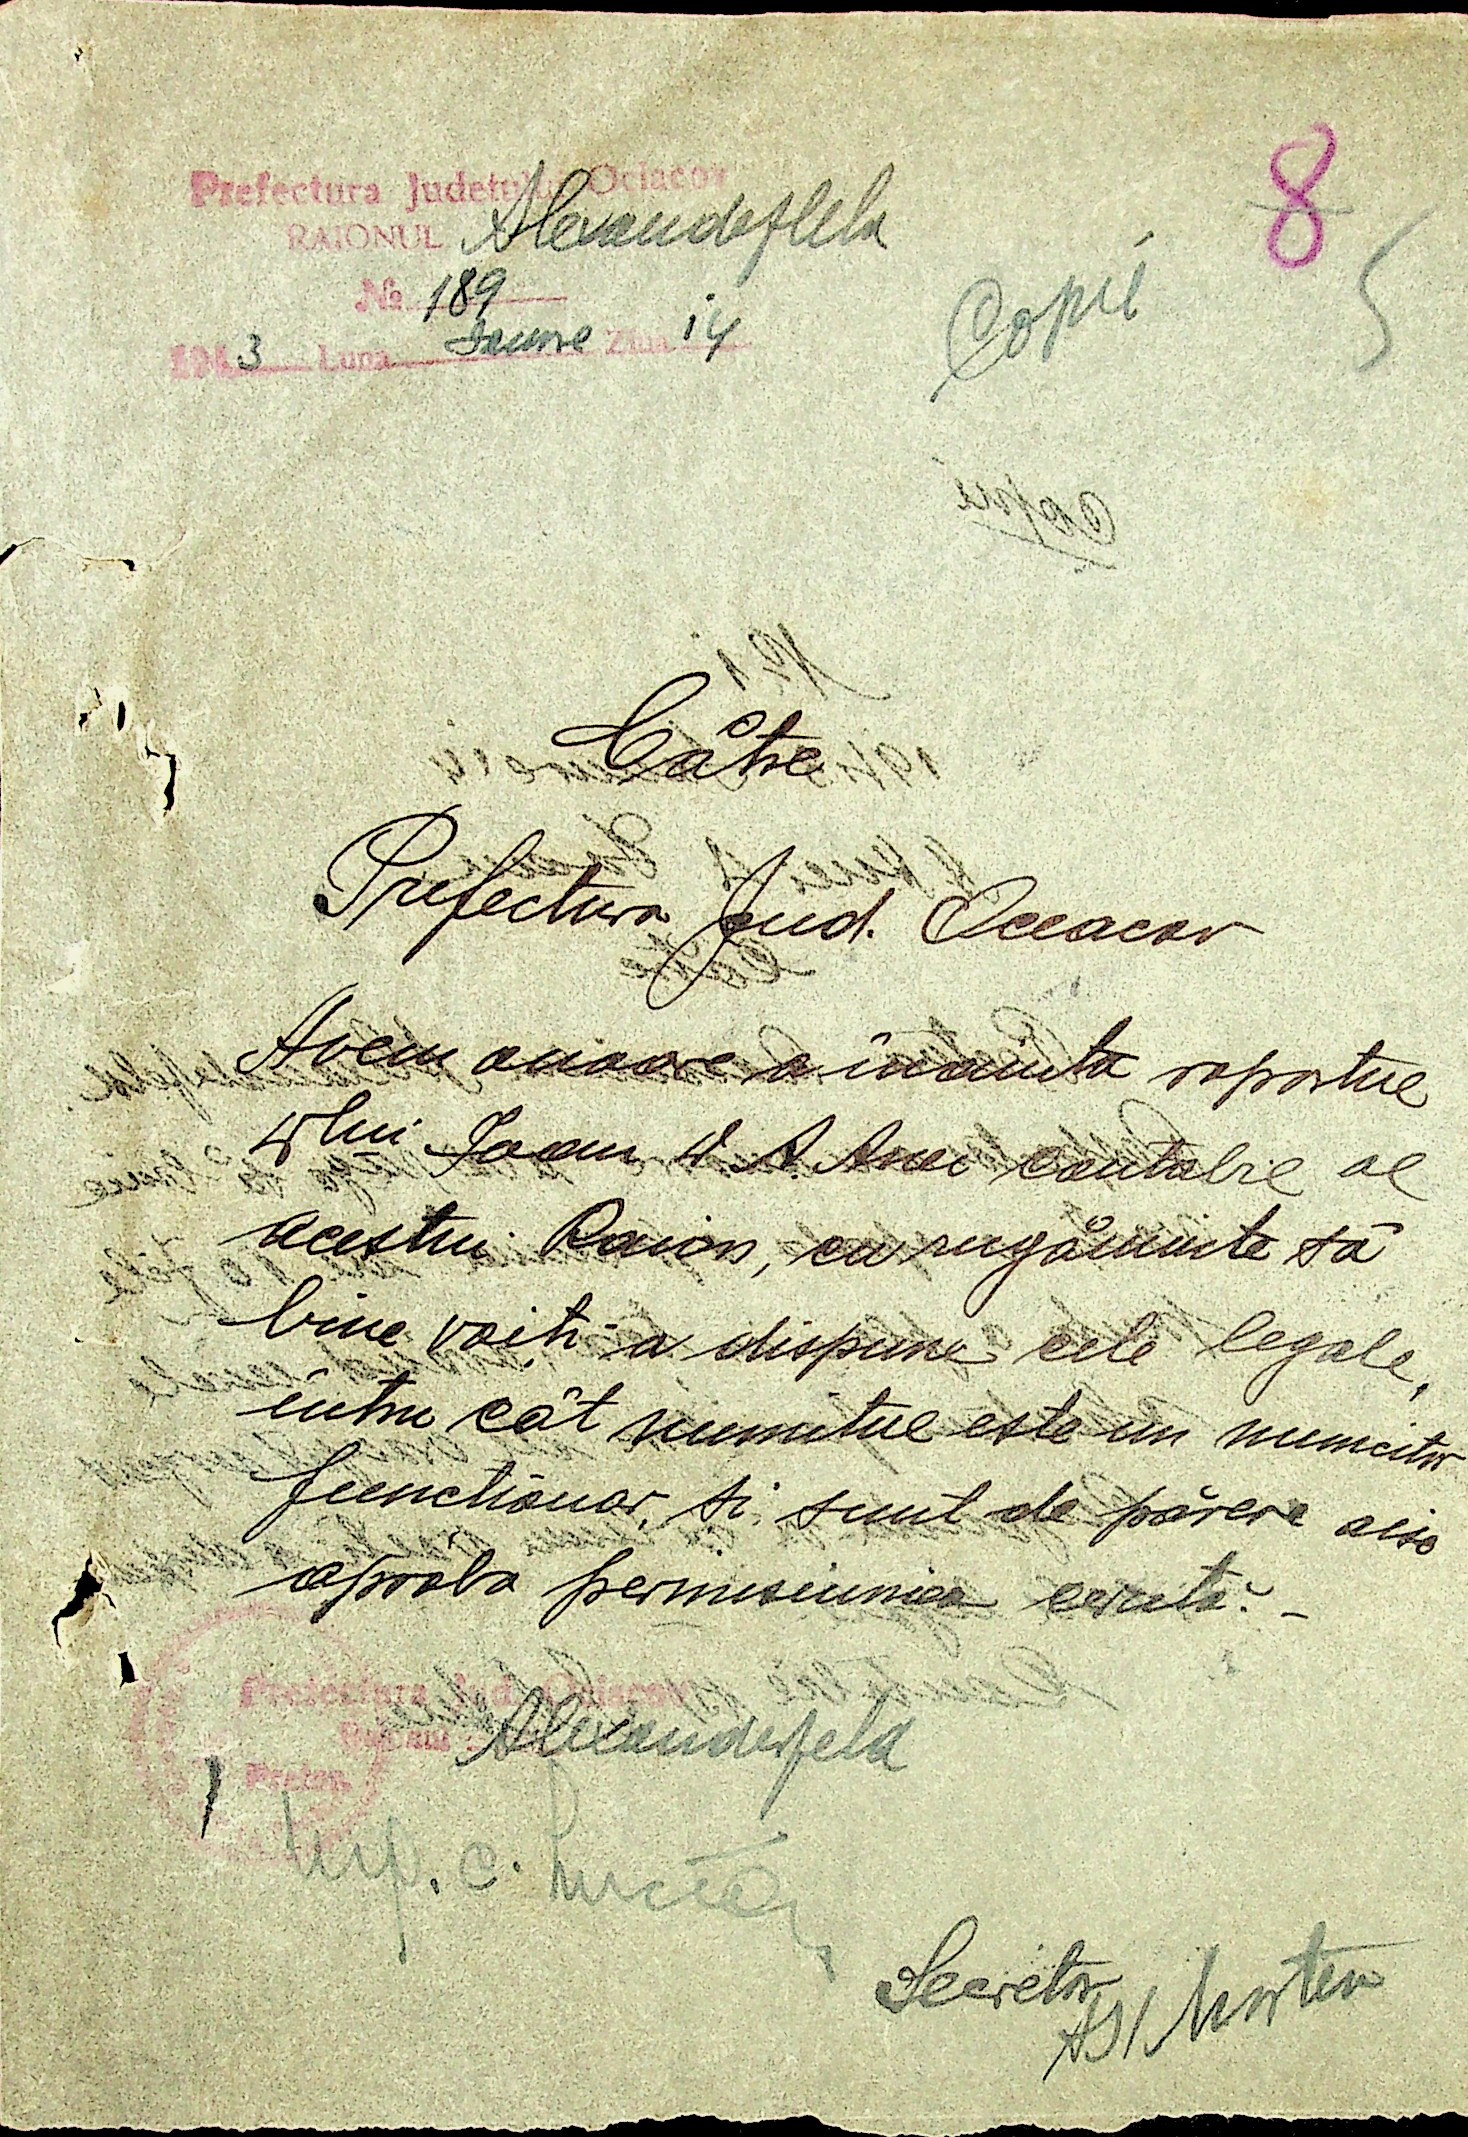 Prefectura Judetului Ociacov
RAIONUL Alexanderfeld
№ 189
1943 Luna Ianuarie Ziua 14
8
Copie
Către
Prefectura Jud. Oceacov
Avem onoare a înainta raportul
Dlui Ioan D. A. contabil al
acestui Raion, cu rugăminte să
bine voiți a dispune cele legale,
întru cât numitul este un muncitor
functionar, si sunt de părere
aproba permisiunea cerută. –
Prefectura Jud. Ociacov
Alexanderfeld
Pretor,
Secretar